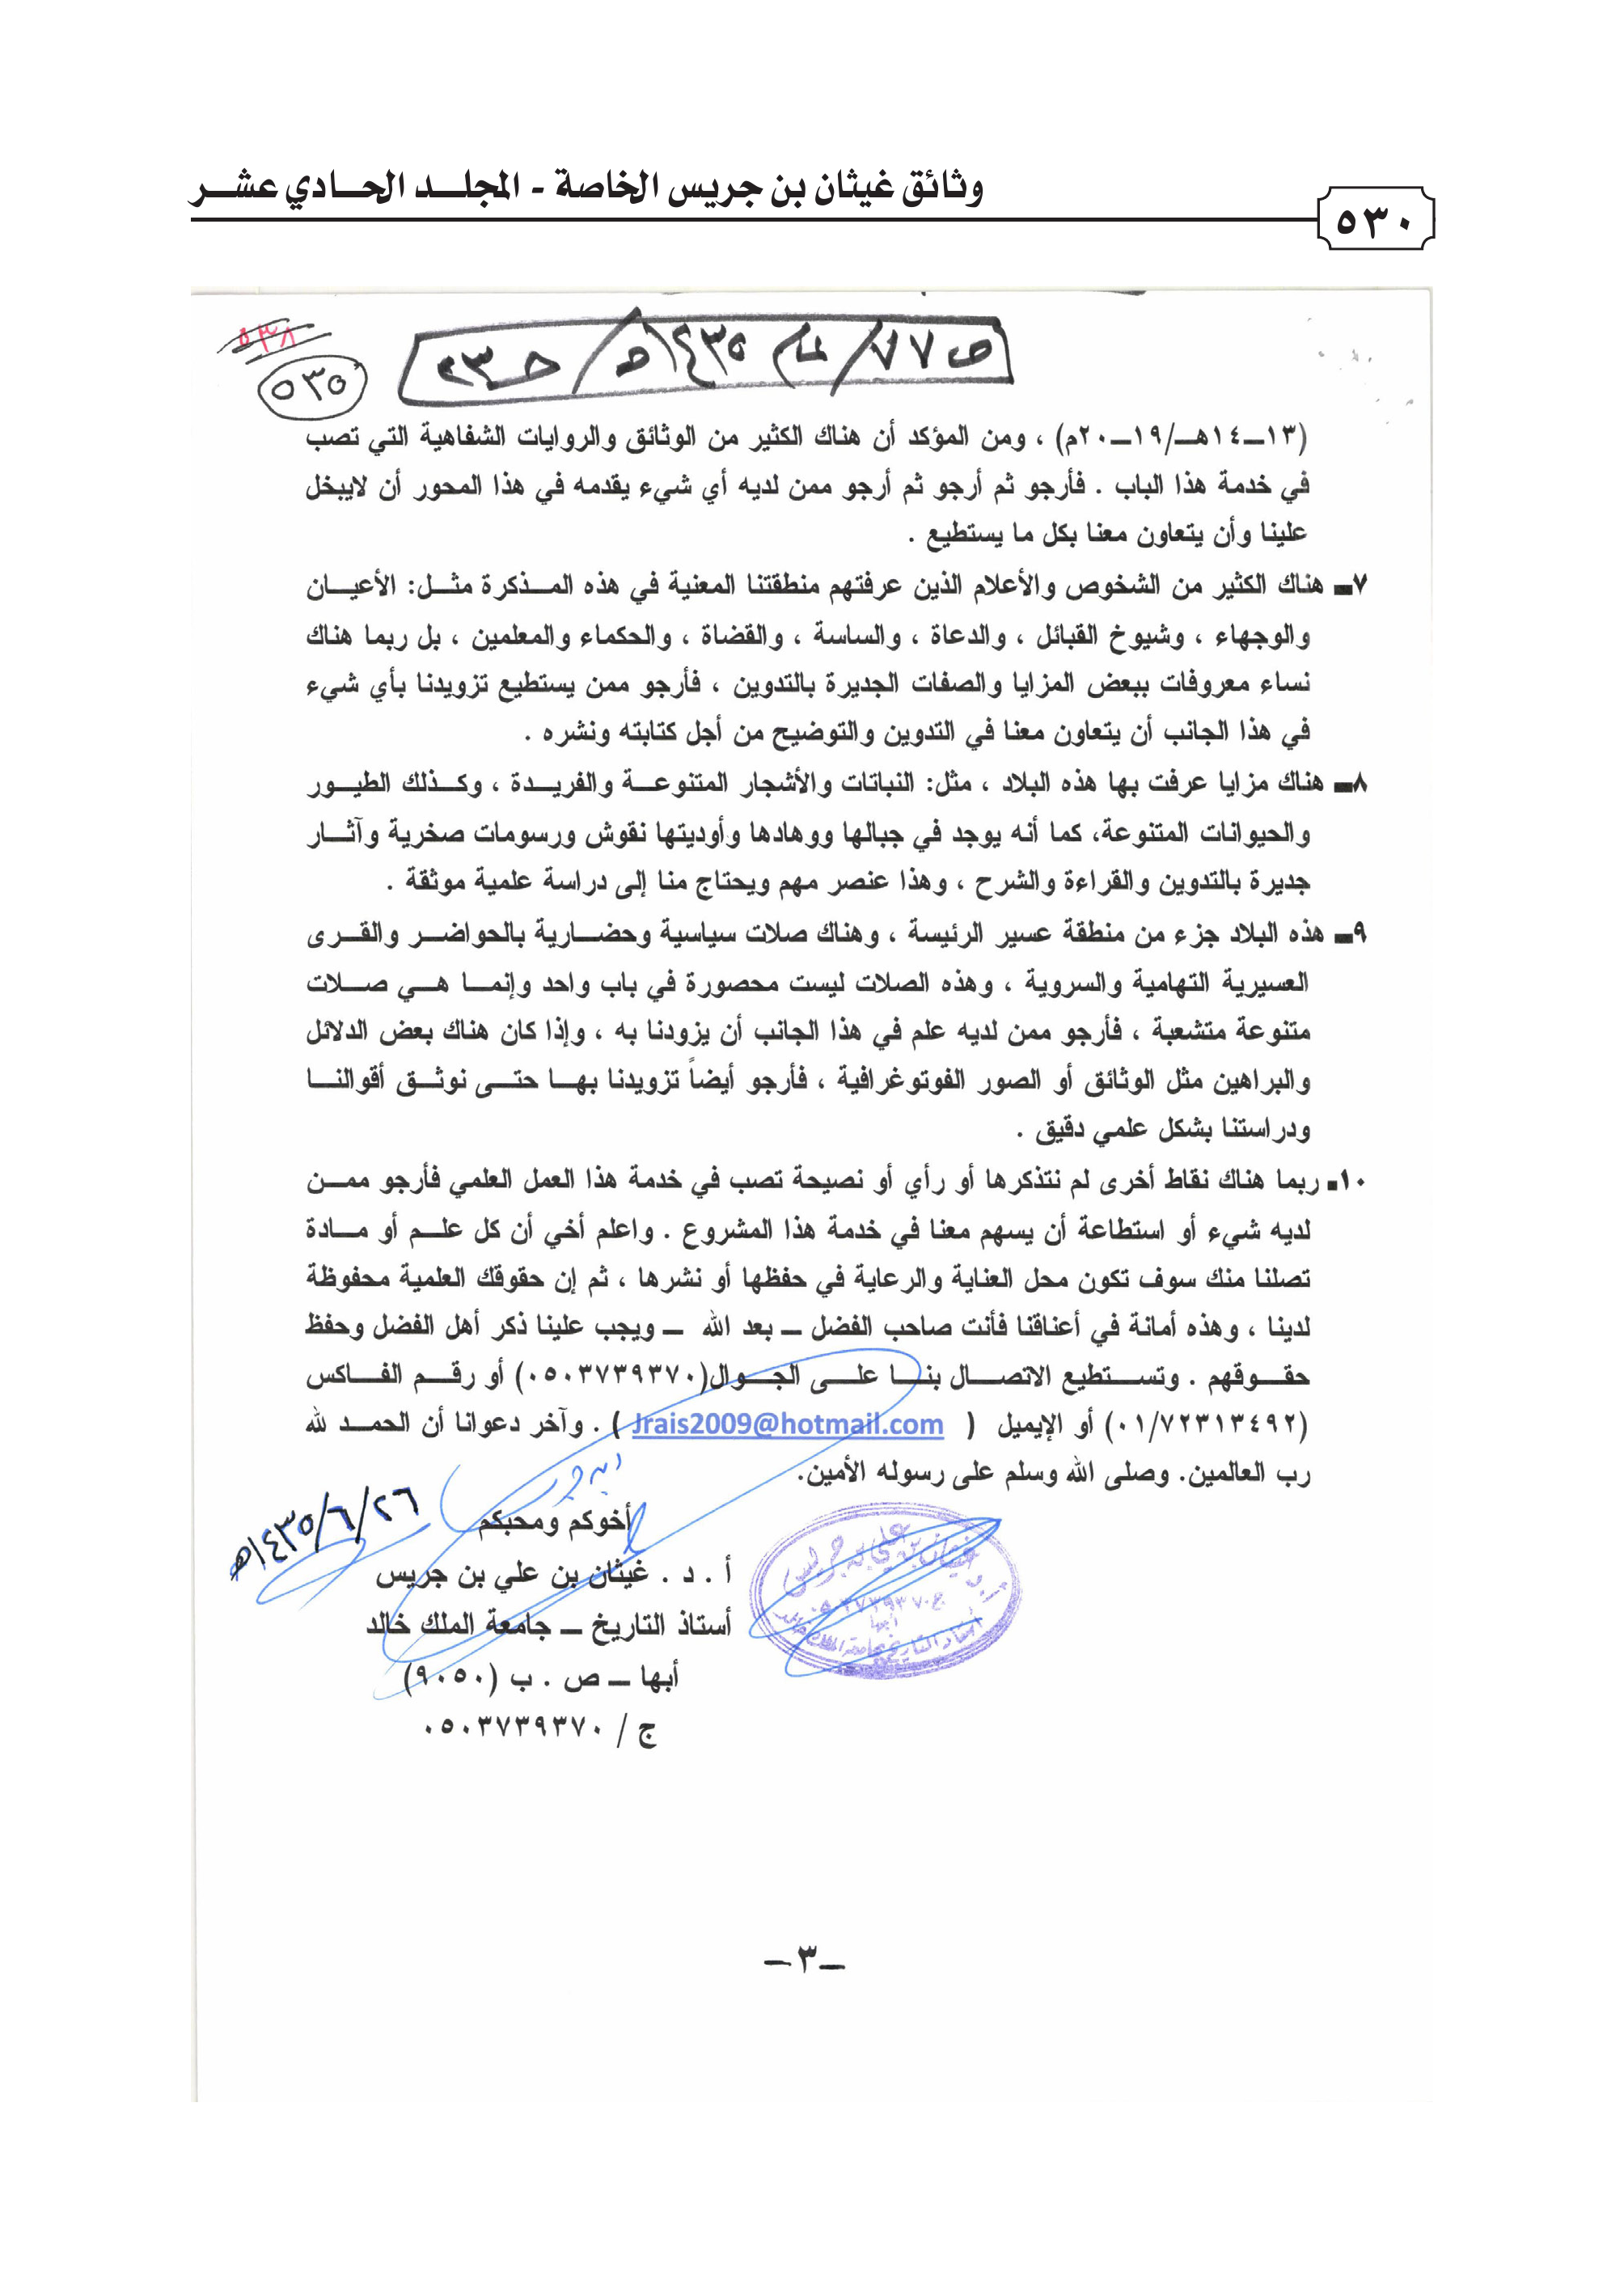 وثائق غيثان بن جريس الخاصة - المجلـــد الحـــادي عشـــر
٥٣٠
٥٣٨
٥٣٥
ص٧٧/ عام ١٤٣٥هـ/ حـ٢٣
(١٣ــ١٤هــ/١٩ــ٢٠م) ، ومن المؤكد أن هناك الكثير من الوثائق والروايات الشفاهية التي تصب
في خدمة هذا الباب . فأرجو ثم أرجو ثم أرجو ممن لديه أي شيء يقدمه في هذا المحور أن لايبخل
علينا وأن يتعاون معنا بكل ما يستطيع .
٧ــ هناك الكثير من الشخوص والأعلام الذين عرفتهم منطقتنا المعنية في هذه المــذكرة مثــل: الأعيــان
والوجهاء ، وشيوخ القبائل ، والدعاة ، والساسة ، والقضاة ، والحكماء والمعلمين ، بل ربما هناك
نساء معروفات ببعض المزايا والصفات الجديرة بالتدوين ، فأرجو ممن يستطيع تزويدنا بأي شيء
في هذا الجانب أن يتعاون معنا في التدوين والتوضيح من أجل كتابته ونشره .
٨ــ هناك مزايا عرفت بها هذه البلاد ، مثل: النباتات والأشجار المتنوعــة والفريــدة ، وكــذلك الطيــور
والحيوانات المتنوعة، كما أنه يوجد في جبالها ووهادها وأوديتها نقوش ورسومات صخرية وآثــار
جديرة بالتدوين والقراءة والشرح ، وهذا عنصر مهم ويحتاج منا إلى دراسة علمية موثقة .
٩ــ هذه البلاد جزء من منطقة عسير الرئيسة ، وهناك صلات سياسية وحضــارية بالحواضــر والقــرى
العسيرية التهامية والسروية ، وهذه الصلات ليست محصورة في باب واحد وإنمــا هــي صــلات
متنوعة متشعبة ، فأرجو ممن لديه علم في هذا الجانب أن يزودنا به ، وإذا كان هناك بعض الدلائل
والبراهين مثل الوثائق أو الصور الفوتوغرافية ، فأرجو أيضاً تزويدنا بهــا حتــى نوثــق أقوالنــا
ودراستنا بشكل علمي دقيق .
١٠ـ ربما هناك نقاط أخرى لم نتذكرها أو رأي أو نصيحة تصب في خدمة هذا العمل العلمي فأرجو ممــن
لديه شيء أو استطاعة أن يسهم معنا في خدمة هذا المشروع . واعلم أخي أن كل علــم أو مــادة
تصلنا منك سوف تكون محل العناية والرعاية في حفظها أو نشرها ، ثم إن حقوقك العلمية محفوظة
لدينا ، وهذه أمانة في أعناقنا فأنت صاحب الفضل ــ بعد الله ــ ويجب علينا ذكر أهل الفضل وحفظ
حقــوقهم . وتســتطيع الاتصــال بنــا علــى الجــوال(٠٥٠٣٧٣٩٣٧٠) أو رقــم الفــاكس
(٠١/٧٢٣١٣٤٩٢) أو الإيميل ( Jrais2009@hotmail.com ) . وآخر دعوانا أن الحمــد لله
رب العالمين. وصلى الله وسلم على رسوله الأمين.
ابن جريس
٢٦/٦/١٤٣٥هـ
أخوكم ومحبكم
أ . د . غيثان بن علي بن جريس
أستاذ التاريخ ــ جامعة الملك خالد
أبها ــ ص . ب (٩٠٥٠)
ج / ٠٥٠٣٧٣٩٣٧٠
أ.د. غيثان بن علي بن جريس
ج ٠٥٠٣٧٣٩٣٧٠
أبها
أستاذ التاريخ بجامعة الملك خالد
ــ٣ــ